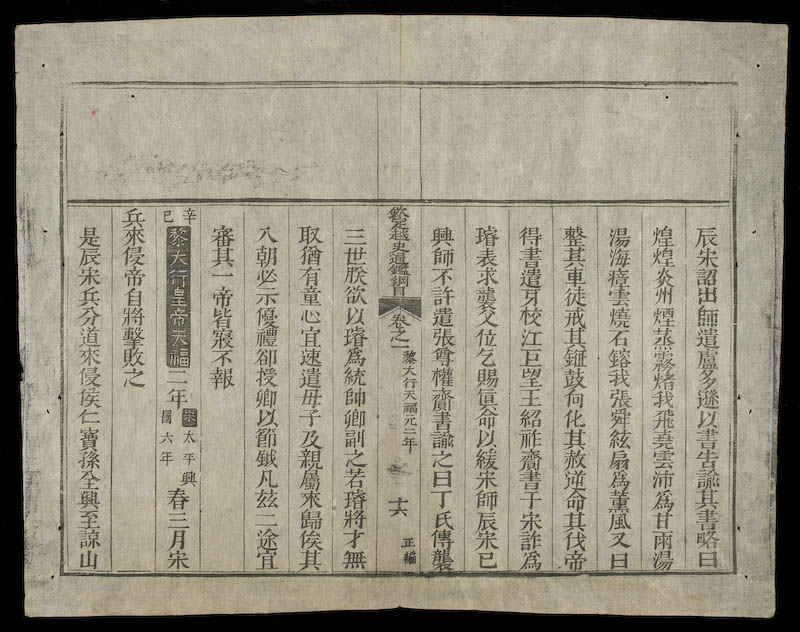 辰宋詔出師遣盧多遜以書告諭其書略曰
煌煌炎州煙蒸霧煮我飛堯雲沛為甘雨湯
湯海瘴雲燒石鎔我張舜絃扇為薰風又曰
整其車徒戒其鉦鼓向化其赦逆命其伐帝
得書遣牙校江巨望王紹祚齎書于宋詐為
璿表求襲父位乞賜真命以緩宋師辰宋已
興師不許遣張尊權齎書諭之曰丁氏傳襲
欽定越史通鑑綱目 卷之一 黎大行天福元二年 十六 正編
三世朕欲以璿為統帥卿副之若璿將才無
取猶有童心宜速遣母子及親屬來歸俟其
入朝必示優禮卻授卿以節鉞凡玆二途宜
審其一帝皆寢不報
辛巳黎大行皇帝天福二年宋太平興國六年春三月宋
兵來侵帝自將擊敗之
是辰宋兵分道來侵侯仁寶孫全興至諒山